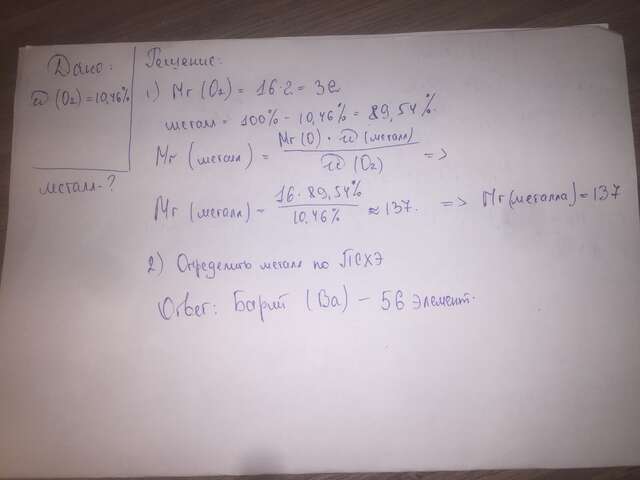 Дано:
ω(O₂)=10,46%
металл-?
Решение:
1) Mr(O₂) = 16·2 = 32
металл = 100% - 10,46% = 89,54%.
Mr (металл) = Mr(O) · ω(металл) / ω(O₂) =>
Mr (металл) = 16 · 89,54% / 10,46% ≈ 137. => Mr(металла) = 137
2) Определить металл по ПСХЭ
Ответ: Барий (Ba) – 56 элемент.